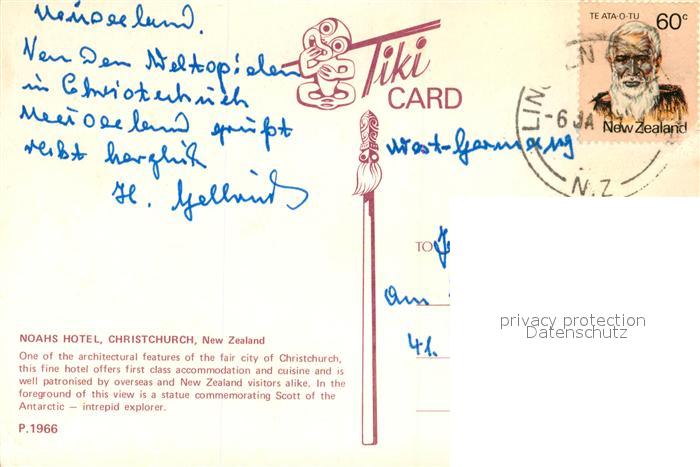 Neuseeland.
Von den Weltspielen
in Christchurch
Neuseeland grüßt
recht herzlich
H.
Tiki
CARD
TE ATA-O-TU
60c
New Zealand
LINCOLN
-6 JA
N.Z
West-Germany
TO
Am
41.
privacy protection
Datenschutz
NOAHS HOTEL, CHRISTCHURCH, New Zealand
One of the architectural features of the fair city of Christchurch,
this fine hotel offers first class accommodation and cuisine and is
well patronised by overseas and New Zealand visitors alike. In the
foreground of this view is a statue commemorating Scott of the
Antarctic — intrepid explorer.
P.1966